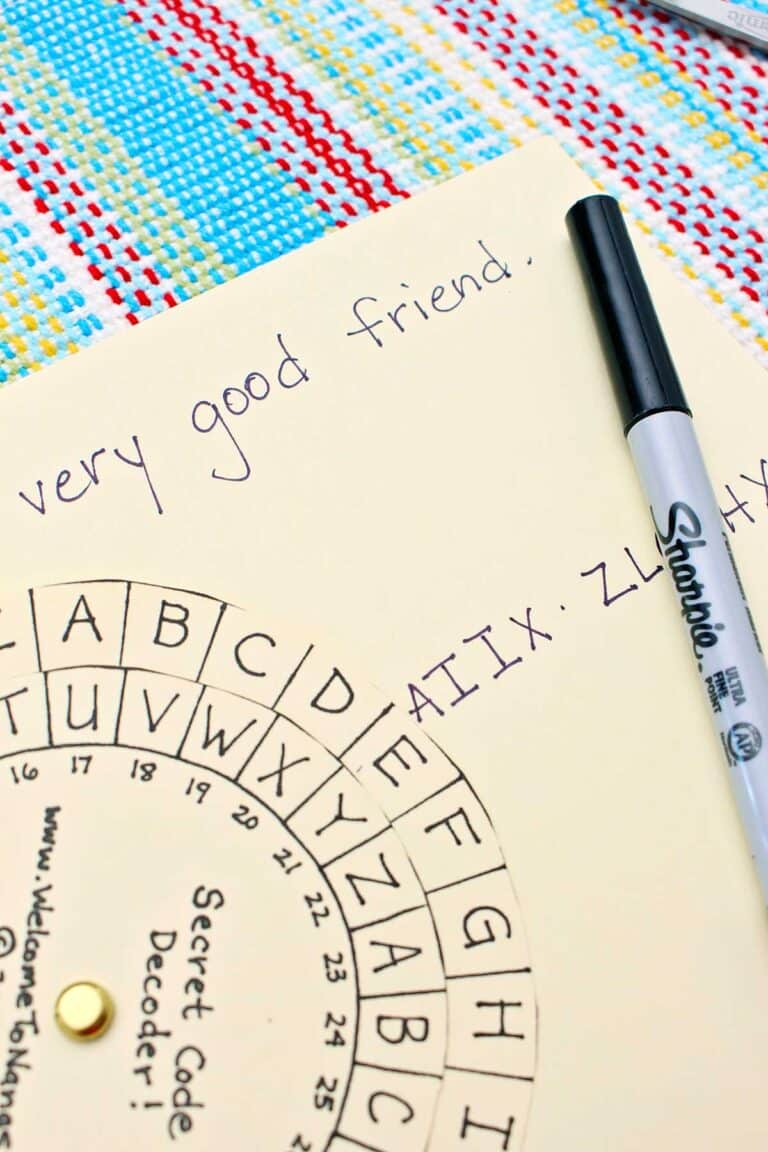 very good friend.
AIIX. ZL
HY
Sharpie.
ULTRA
FINE
POINT
AP
A B C D E F G H I
T U V W X Y Z A B C
16 17 18 19 20 21 22 23 24 25
Secret Code
Decoder!
www.WelcomeToNanas
©